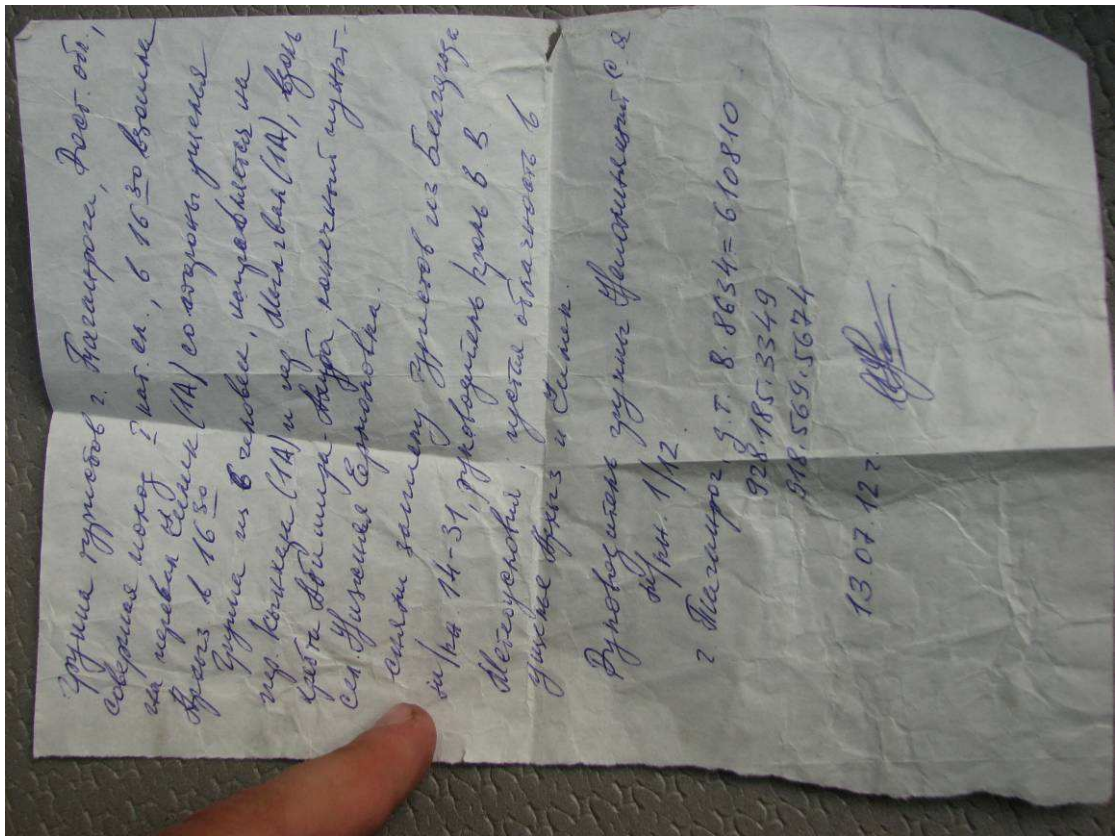 Группа туристов г. Таганрога, Рост. обл.,
совершая поход I кат. сл., в 16 30 взошла
на перевал Чемик (1А) со стороны ущелья
Архыз в 16 30
Группа из 6 человек, направляется на
пер. Кызылчук (1А) и пер. (1А), вдоль
хребта Абишира-Ахуба конечный пункт-
сел. Нижняя Ермоловка.
Сняли записку туристов из Белгорода
м/кн. 14-31, руководитель Кроль В. В
Метеоусловия: густая облачность в
ущелье Архыз и
Руководитель группы С. Я
м/кн. 1/12.
г Таганрог, д. т. 8. 8634 = 610810
928. 185. 3349
918. 569. 5674
13. 07. 12 г.